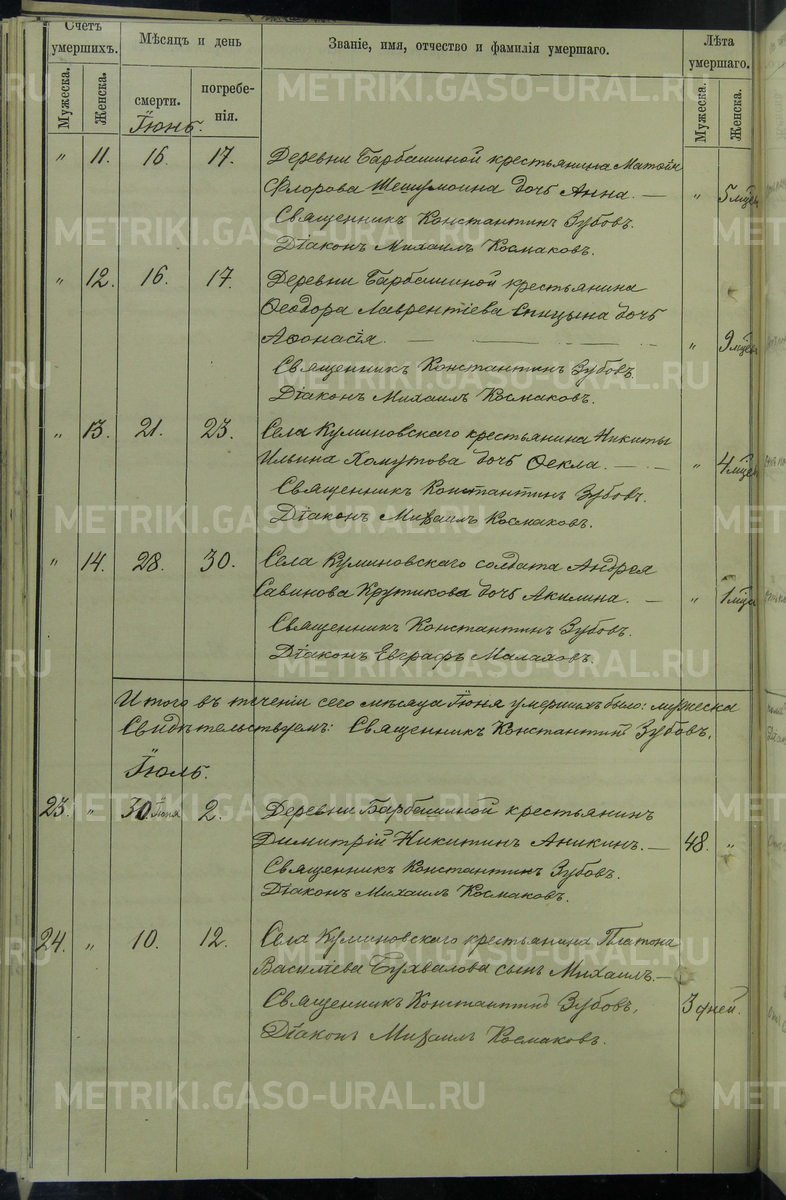 Счетъ умершихъ.
Мѣсяцъ и день
Званіе, имя, отчество и фамилія умершаго.
Лѣта умершаго.
Мужеска.
Женска.
смерти.
погребенія.
Мужеска.
Женска.
METRIKI.GASO-URAL.RU
Іюнь.
" 11. 16. 17. Деревни Барбашиной крестьянина Матѳія
Флорова Шешумоина дочь Анна. — " 5 мцев
Священникъ Константинъ Зубовъ.
Діаконъ Михаилъ Космаковъ.
" 12. 16. 17. Деревни Барбашиной крестьянина
Ѳеодора Лаврентіева Спицына дочь
Аѳонасія. — " 9 мцев
Священникъ Константинъ Зубовъ.
Діаконъ Михаилъ Космаковъ.
" 13. 21. 23. Села Куминовскаго крестьянина Никиты
Ильина Хомутова дочь Ѳекла. — " 4 мцев
Священникъ Константинъ Зубовъ.
Діаконъ Михаилъ Космаковъ.
" 14. 28. 30. Села Куминовскаго солдата Андрея
Савинова Крутикова дочь Акилина. — " 1 мца
Священникъ Константинъ Зубовъ.
Діаконъ Евграфъ Малаховъ.
Итого въ теченіи сего мѣсяца Іюня умершихъ было: мужеска
Свидѣтельствуемъ: Священникъ Константинъ Зубовъ,
Іюль.
23. " 30 Іюня 2. Деревни Барбашиной крестьянинъ
Димитрій Никитинъ Аникинъ. — 48. "
Священникъ Константинъ Зубовъ.
Діаконъ Михаилъ Космаковъ.
24. " 10. 12. Села Куминовскаго крестьянина Платона
Василіева Бухвалова сынъ Михаилъ. —
Священникъ Константинъ Зубовъ, 3 дней.
Діаконъ Михаилъ Космаковъ.